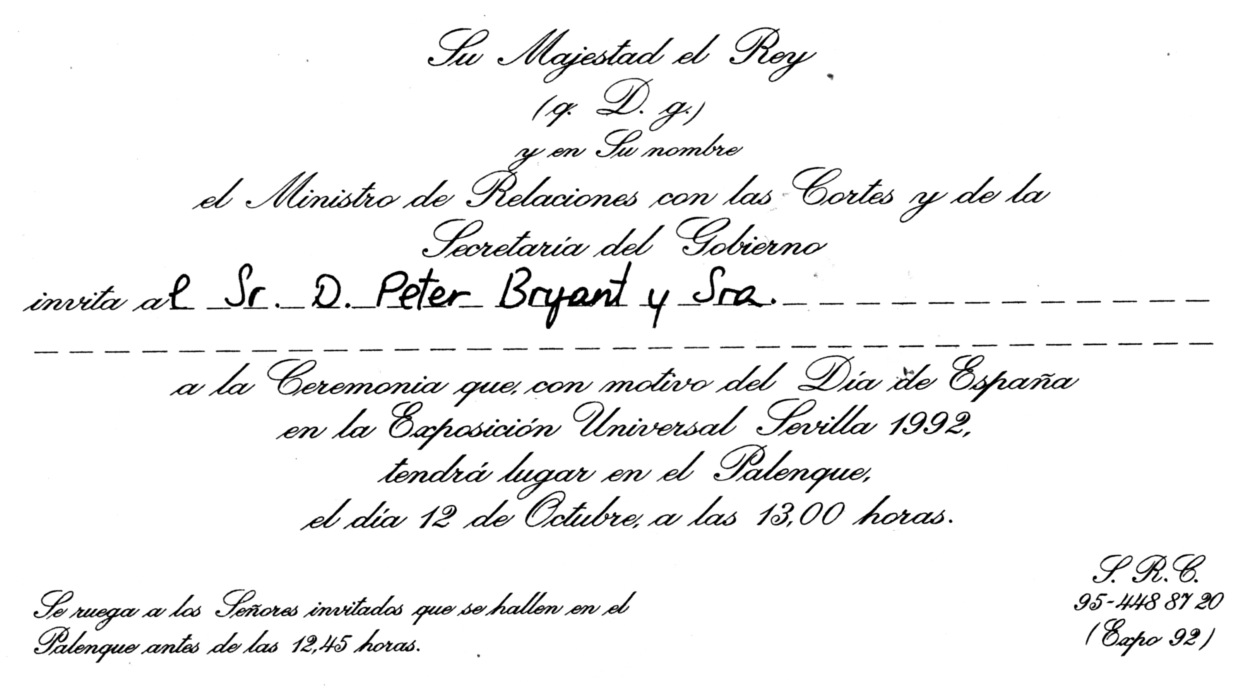 Su Majestad el Rey
(q. D. g.)
y en Su nombre
el Ministro de Relaciones con las Cortes y de la
Secretaría del Gobierno
invita al Sr. D. Peter Bryant y Sra.
a la Ceremonia que, con motivo del Día de España
en la Exposición Universal Sevilla 1992,
tendrá lugar en el Palenque,
el día 12 de Octubre, a las 13,00 horas.
Se ruega a los Señores invitados que se hallen en el
Palenque antes de las 12,45 horas.
S. R. C.
95-448 87 20
(Expo 92)